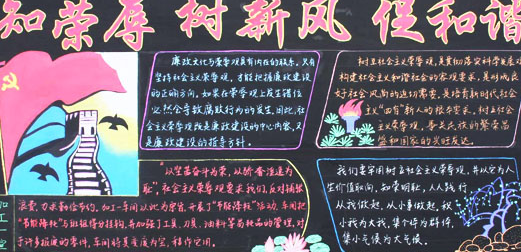 知荣辱 树新风 促和谐
廉政文化与荣辱观具有内在的联系。只有
坚持社会主义荣辱观,才能把握廉政建设
的正确方向。如果在荣辱观上发生错位
必然会导致腐败行为的发生。因此,社
会主义荣辱观既是廉政建设的中心内容,又
是廉政建设的指导方针。
树立社会主义荣辱观,是贯彻落实科学发展观
构建社会主义和谐社会的客观要求,是形成良
好社会风尚的迫切需要,是培育新时代社会
主义“四有”新人的根本要求。树立社会
主义荣辱观,事关民族的繁荣昌
盛和国家的兴旺发达。
“以艰苦奋斗为荣,以骄奢淫逸为
耻”,社会主义荣辱观要求我们,反对铺张
浪费,力求勤俭节约。加工一车间以此为宗旨,开展了“节能降耗”活动。车间把
“节能降耗”与班组得分挂钩,并加强了工具、刀具、油料等易耗品的管理。对
于许多报废的零件,车间将其变废为宝,
我们要牢固树立社会主义荣辱观,并以它为人
生价值取向,知荣明耻,人人践行。
从我做起,从小事做起,积
小我为大我,集个体为群体,
集小气候为大气候。